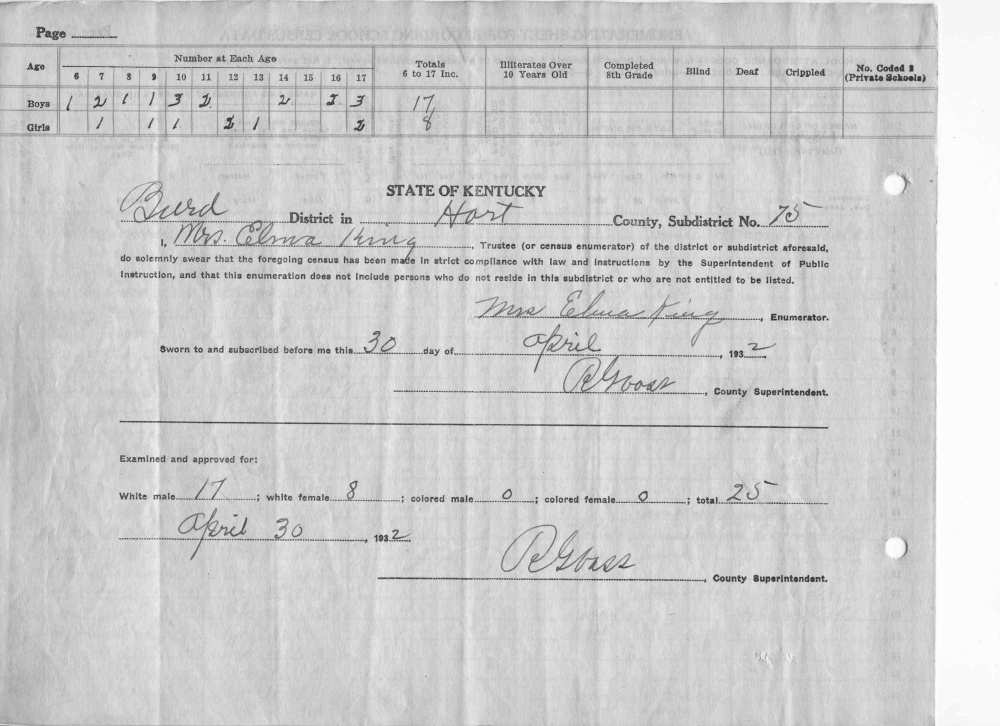 Page
Age Number at Each Age Totals 6 to 17 Inc. Illiterates Over 10 Years Old Completed 8th Grade Blind Deaf Crippled No. Coded 2 (Private Schools)
6 7 8 9 10 11 12 13 14 15 16 17
Boys 1 2 1 1 3 2 2 2 3 17
Girls 1 1 1 2 1 2 8
STATE OF KENTUCKY
Burd District in Hart County, Subdistrict No. 75
I, Mrs. Elma King, Trustee (or census enumerator) of the district or subdistrict aforesaid,
do solemnly swear that the foregoing census has been made in strict compliance with law and instructions by the Superintendent of Public
Instruction, and that this enumeration does not include persons who do not reside in this subdistrict or who are not entitled to be listed.
Mrs Elma King, Enumerator.
Sworn to and subscribed before me this 30 day of April, 1932
, County Superintendent.
Examined and approved for:
White male 17; white female 8; colored male 0; colored female 0; total 25
April 30, 1932
, County Superintendent.